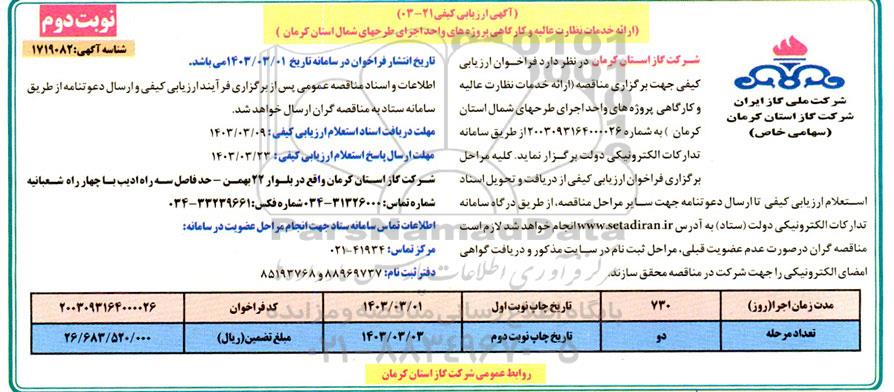 (آگهی ارزیابی کیفی ۲۱-۰۳)
(ارائه خدمات نظارت عالیه و کارگاهی پروژه های واحد اجرای طرحهای شمال استان کرمان )
نوبت دوم
شناسه آگهی: ۱۷۱۹۰۸۲
شرکت ملی گاز ایران
شرکت گاز استان کرمان
(سهامی خاص)
شرکت گاز استان کرمان در نظر دارد فراخوان ارزیابی
کیفی جهت برگزاری مناقصه (ارائه خدمات نظارت عالیه
و کارگاهی پروژه های واحد اجرای طرحهای شمال استان
کرمان ) به شماره ۲۰۰۳۰۹۳۱۶۴۰۰۰۰۲۶ از طریق سامانه
تدارکات الکترونیکی دولت برگزار نماید. کلیه مراحل
برگزاری فراخوان ارزیابی کیفی از دریافت و تحویل اسناد
استعلام ارزیابی کیفی تا ارسال دعوتنامه جهت سایر مراحل مناقصه، از طریق درگاه سامانه
تدارکات الکترونیکی دولت (ستاد) به آدرس www.setadiran.ir انجام خواهد شد لازم است
مناقصه گران در صورت عدم عضویت قبلی، مراحل ثبت نام در سایت مذکور و دریافت گواهی
امضای الکترونیکی را جهت شرکت در مناقصه محقق سازند.
تاریخ انتشار فراخوان در سامانه تاریخ ۱۴۰۳/۰۳/۰۱ می باشد.
اطلاعات و اسناد مناقصه عمومی پس از برگزاری فرآیند ارزیابی کیفی و ارسال دعوتنامه از طریق
سامانه ستاد به مناقصه گران ارسال خواهد شد.
مهلت دریافت اسناد استعلام ارزیابی کیفی : ۱۴۰۳/۰۳/۰۹
مهلت ارسال پاسخ استعلام ارزیابی کیفی : ۱۴۰۳/۰۳/۲۳
شرکت گاز استان کرمان واقع در بلوار ۲۲ بهمن - حد فاصل سه راه ادیب با چهار راه شعبانیه
شماره تماس: ۳۱۳۲۶۰۰۰-۰۳۴ شماره فکس: ۳۳۲۳۹۶۶۱-۰۳۴
اطلاعات تماس سامانه ستاد جهت انجام مراحل عضویت در سامانه:
مرکز تماس: ۴۱۹۳۴-۰۲۱
دفتر ثبت نام : ۸۸۹۶۹۷۳۷ و ۸۵۱۹۳۷۶۸
مدت زمان اجرا (روز) ۷۳۰ تاریخ چاپ نوبت اول ۱۴۰۳/۰۳/۰۱ کد فراخوان ۲۰۰۳۰۹۳۱۶۴۰۰۰۰۲۶
تعداد مرحله دو تاریخ چاپ نوبت دوم ۱۴۰۳/۰۳/۰۳ مبلغ تضمین (ریال) ۲۶/۶۸۳/۵۲۰/۰۰۰
روابط عمومی شرکت گاز استان کرمان
ParsNamadData
پایگاه اطلاع رسانی مناقصه و مزایده